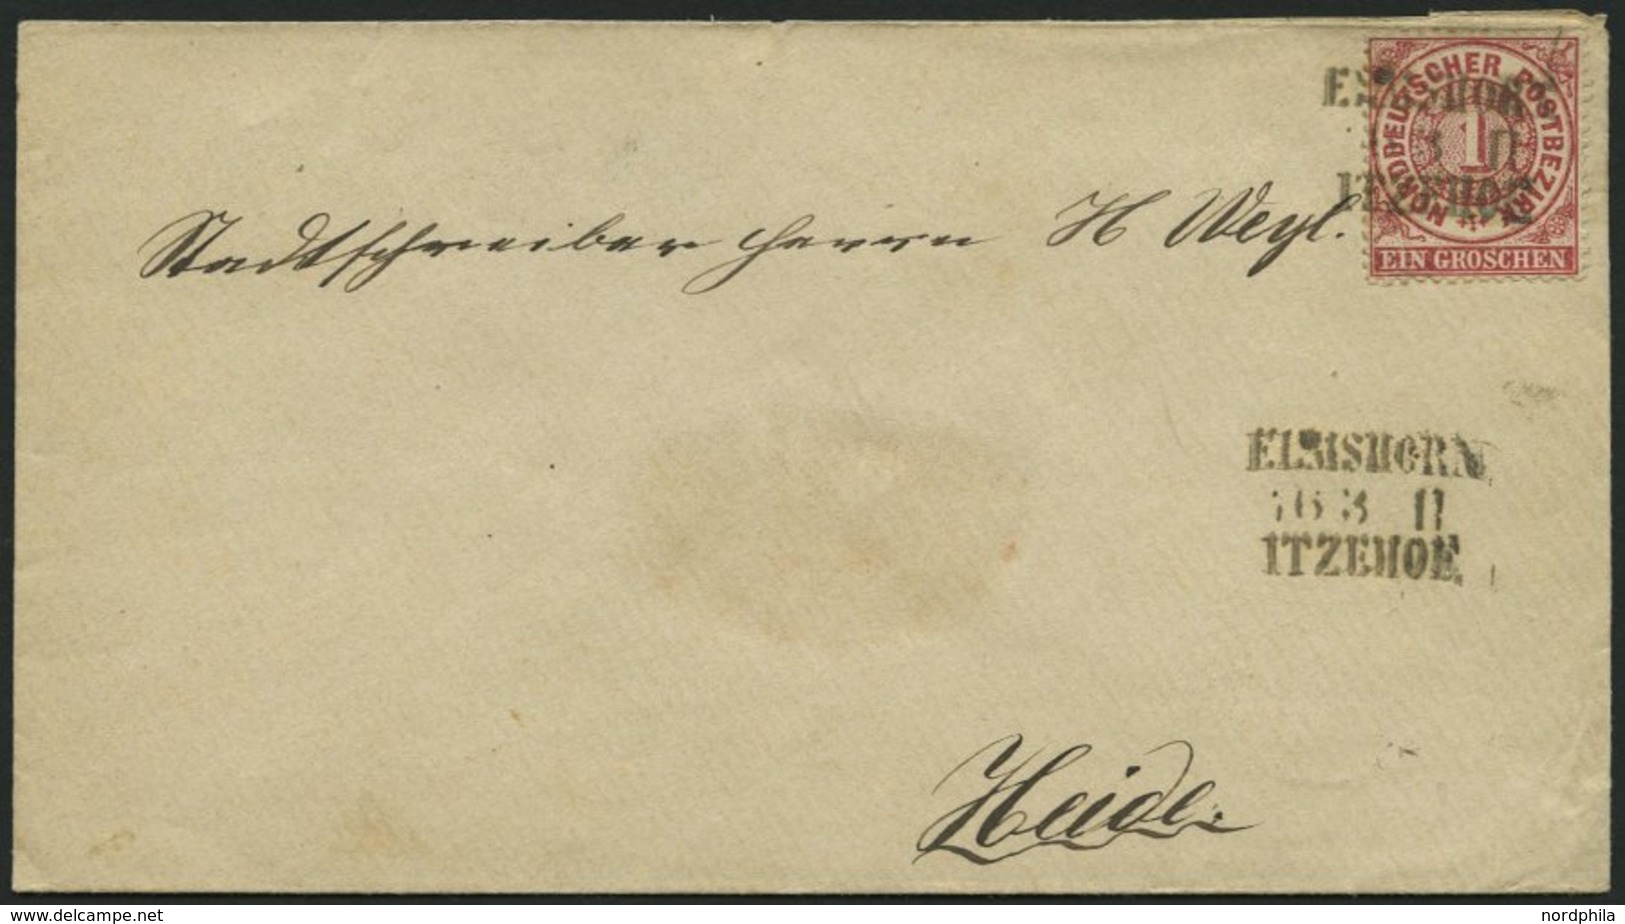 NORDDEUTSCHER POSTBEZIRK
1
EIN GROSCHEN
Stadtschreiber Herrn H Weyl.
ELMSHORN
16 3 II
ITZEHOE.
Heide.
www.delcampe.net
nordphila